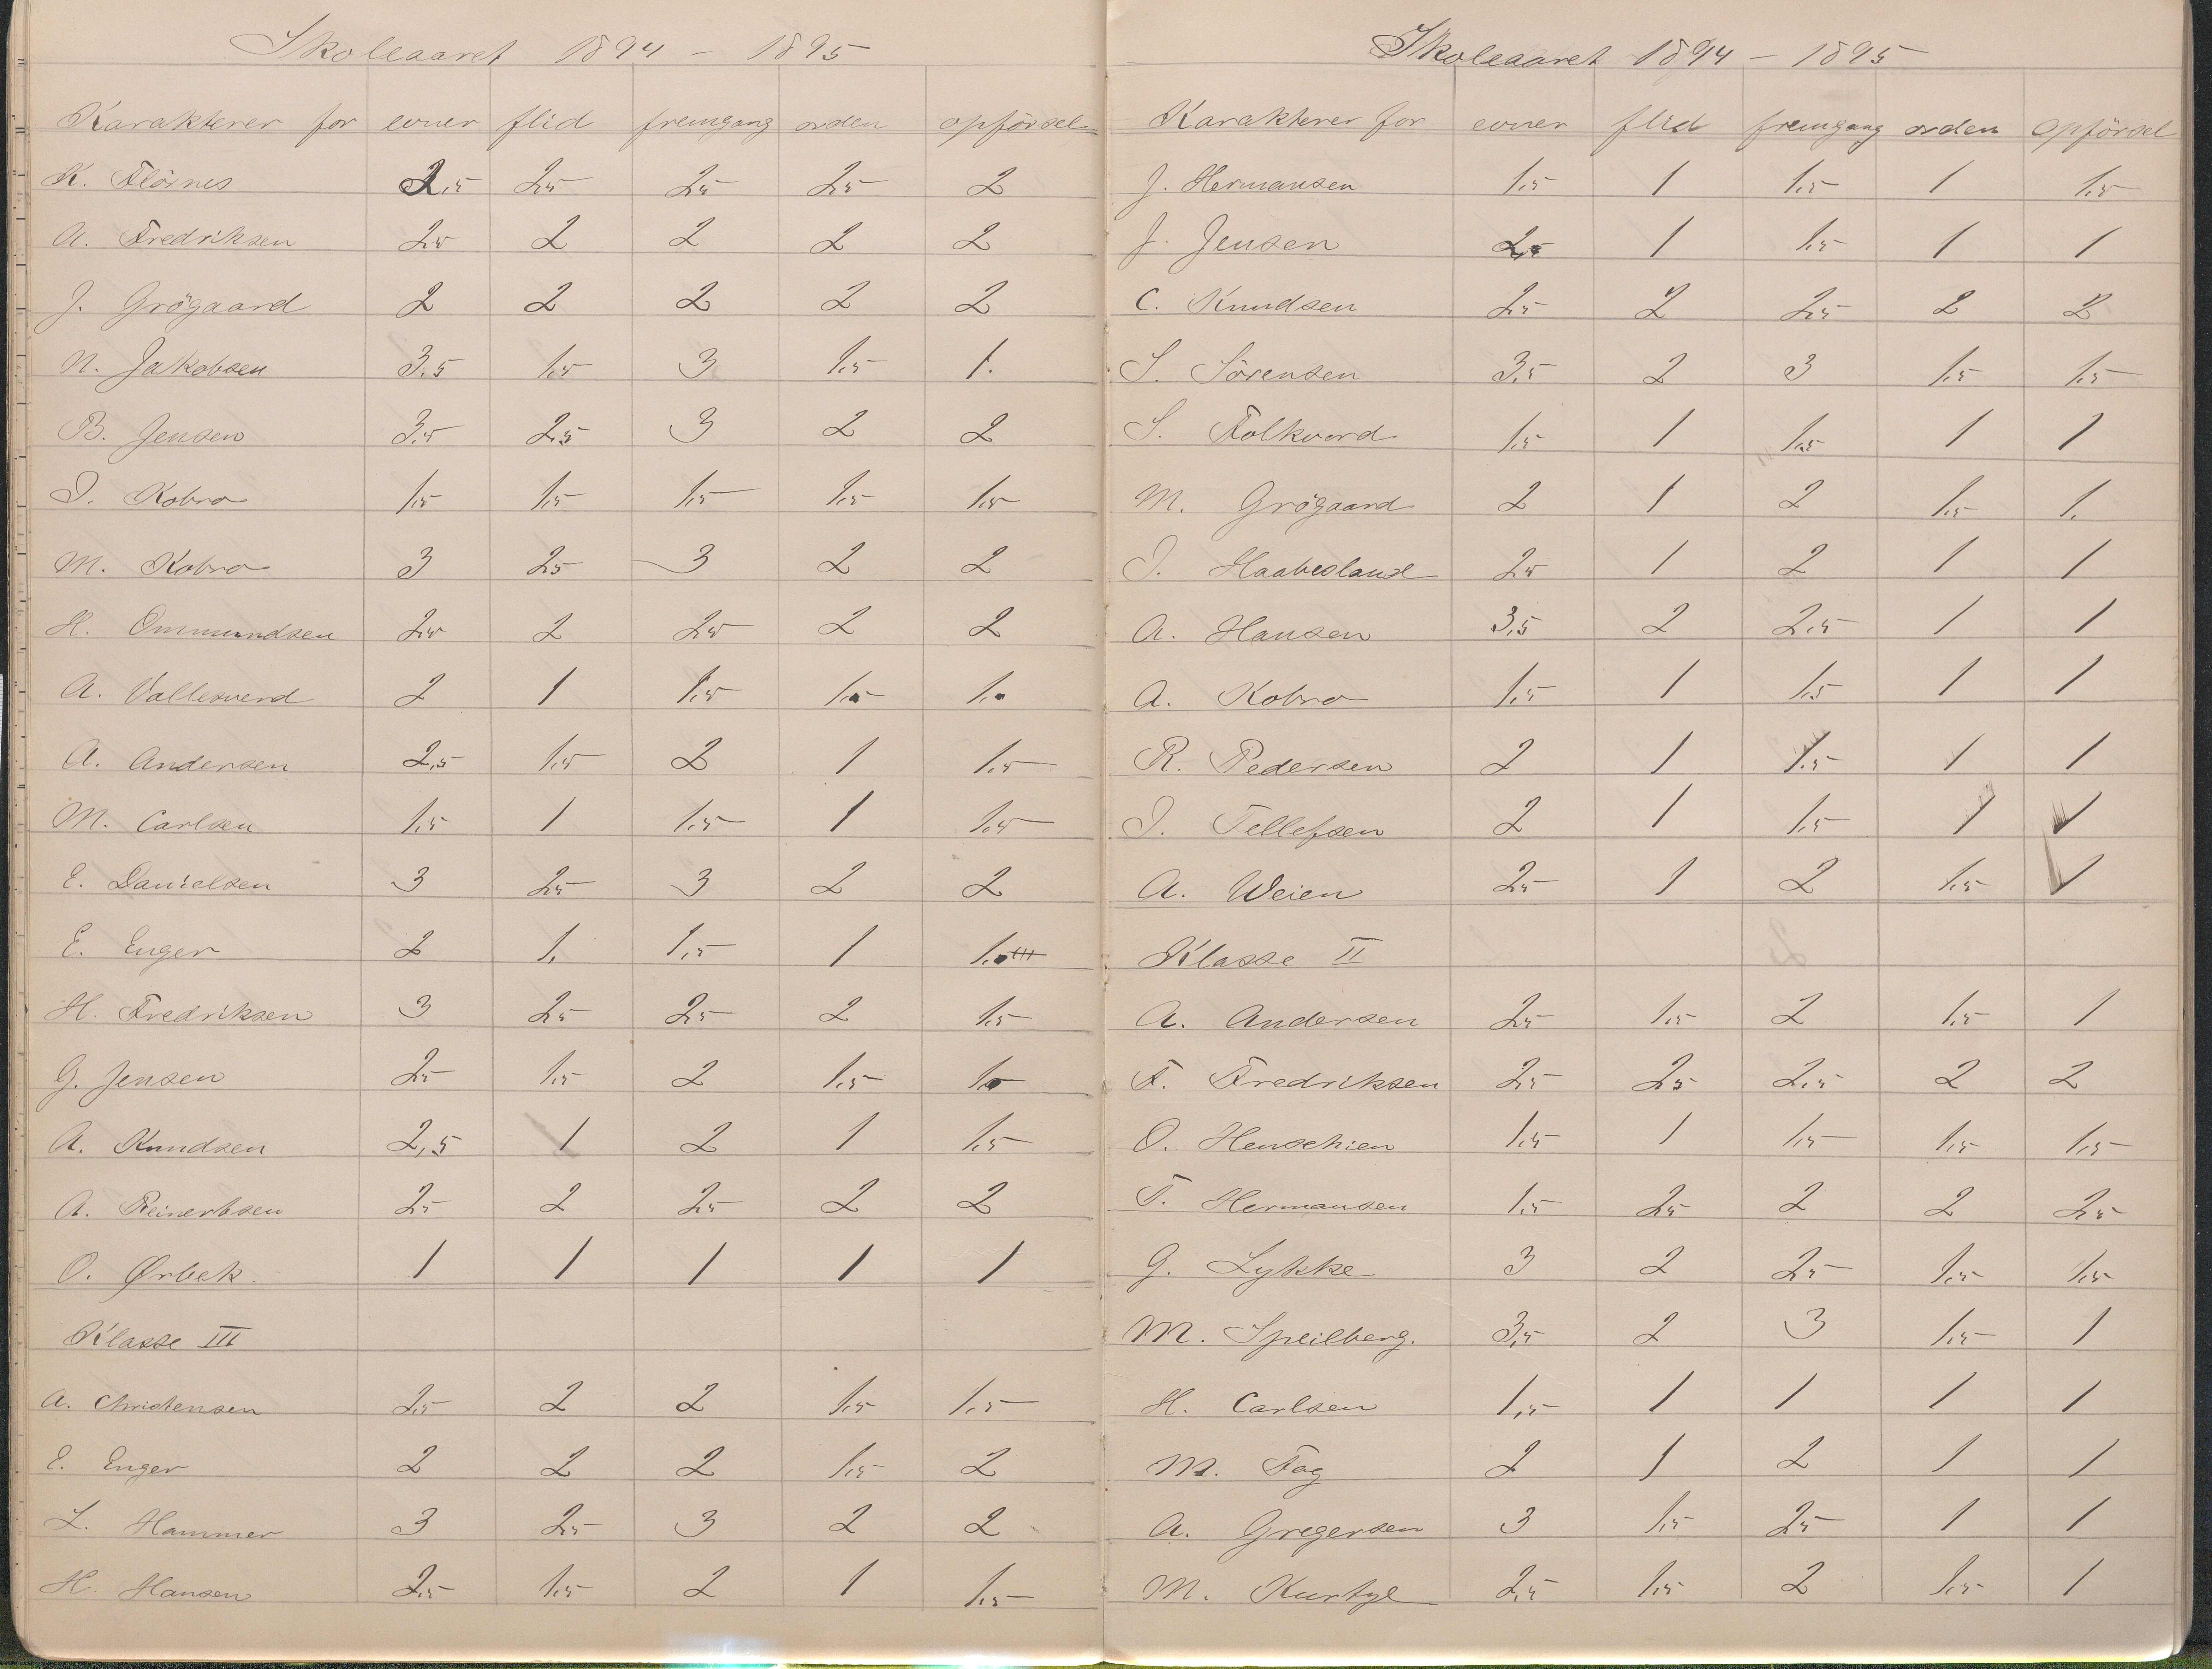 Skoleaaret 1894 – 1895
Karakterer for evner flid fremgang orden opförsel
K. Flöines 2,5 2,5 2,5 2,5 2
A. Fredriksen 2,5 2 2 2 2
J. Grögaard 2 2 2 2 2
N. Jakobsen 3,5 1,5 3 1,5 1.
B. Jensen 3,5 2,5 3 2 2
I. Kobro 1,5 1,5 1,5 1,5 1,5
M. Kobro 3 2,5 3 2 2
H. Ommundsen 2,5 2 2,5 2 2
A. Vallesverd 2 1 1,5 1,5 1.
A. Andersen 2,5 1,5 2 1 1,5
M. Carlsen 1,5 1 1,5 1 1,5
E. Danielsen 3 2,5 3 2 2
E. Enger 2 1. 1,5 1 1.
H. Fredriksen 3 2,5 2,5 2 1,5
G. Jensen 2,5 1,5 2 1,5 1.
A. Knudsen 2,5 1 2 1 1,5
A. Reinertsen 2,5 2 2,5 2 2
O. Ørbek. 1 1 1 1 1
Klasse III
A. Christensen 2,5 2 2 1,5 1,5
E. Enger 2 2 2 1,5 2
L. Hammer 3 2,5 3 2 2
H. Hansen 2,5 1,5 2 1 1,5
Skoleaaret 1894 – 1895
Karakterer for evner flid fremgang orden opförsel
J. Hermansen 1,5 1 1,5 1 1,5
J. Jensen 2,5 1 1,5 1 1
C. Knudsen 2,5 2 2,5 2 2
S. Sörensen 3,5 2 3 1,5 1,5
S. Folkvord 1,5 1 1,5 1 1
M. Grögaard 2 1 2 1,5 1.
I. Haabesland 2,5 1 2 1 1
A. Hansen 3,5 2 2,5 1 1
A. Kobro 1,5 1 1,5 1 1
R. Pedersen 2 1 1,5 1 1
I. Tellefsen 2 1 1,5 1 1
A. Weien 2,5 1 2 1,5 1
Klasse II
A. Andersen 2,5 1,5 2 1,5 1
F. Fredriksen 2,5 2,5 2,5 2 2
O. Henschien 1,5 1 1,5 1,5 1,5
T. Hermansen 1,5 2,5 2 2 2,5
G. Lykke 3 2 2,5 1,5 1,5
M. Speilberg. 3,5 2 3 1,5 1
H. Carlsen 1,5 1 1 1 1
M. Fog 2 1 2 1 1
A. Gregersen 3 1,5 2,5 1 1
M. 2,5 1,5 2 1,5 1